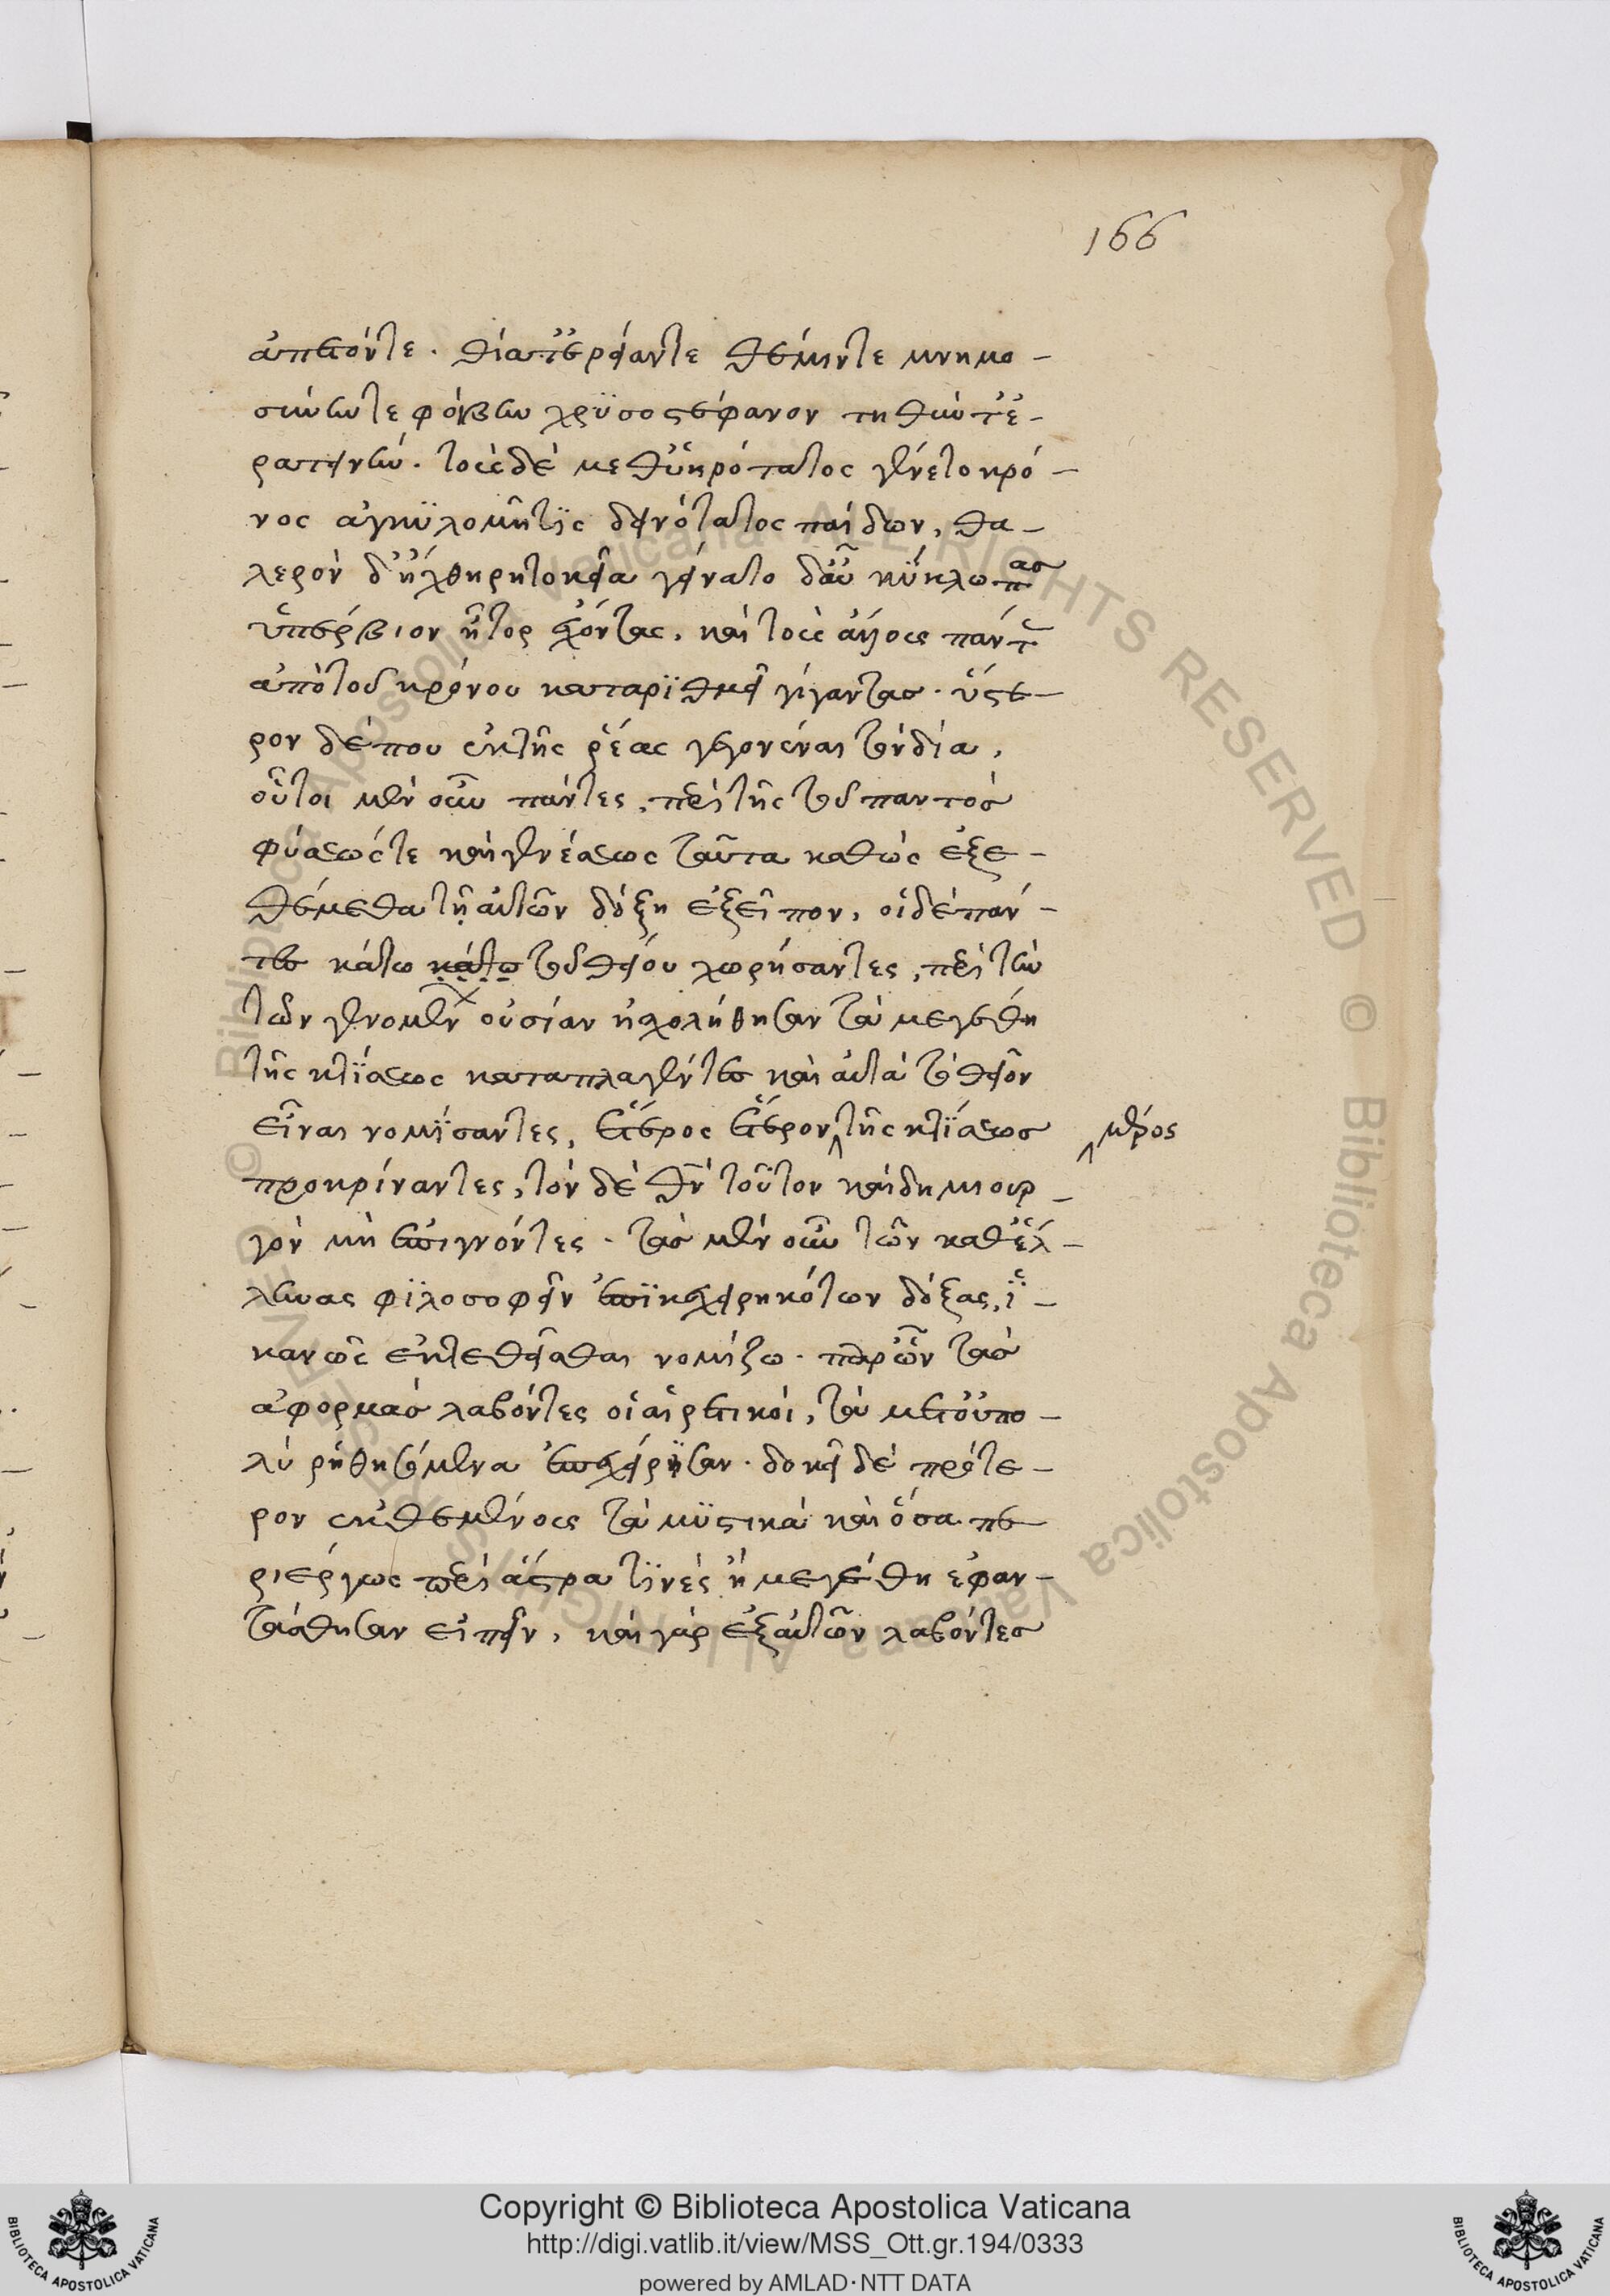 166
ἀπετόντε. θίαπερῥείαντε θέμιντε μνημο-
σύνην τε φόιβην χρϋσοστέφανον τηθύν τ' ἐ-
ρατεινήν. τοὺς δὲ μεθ' ὁπρότατος γένετο κρό-
νος ἀγκϋλομῆτϊς δεινότατος παίδων, θα-
λερὸν δ' ἤχθηρητοκῆα γείνατο δ' αὖ κϋκλωπας
ὑπέρβιον ἦτορ ἔχοντας. καὶ τοὺς ἄλλους πάντ
ἀπὸ τοῦ κρόνου καταρϊθμεῖ γίγαντας. ὕστε-
ρον δέπου ἐκ τῆς ῥέας γεγονέναι τὸν δία,
οὗτοι μὲν οὖν πάντες, περὶ τῆς τοῦ παντὸς
φύσεώς τε καὶ γενέσεως ταῦτα καθὼς ἐξε-
θέμεθα τῇ αὐτῶν δόξῃ ἐξεῖπον, οἱ δὲ πάν-
τες κάτω κάτω τοῦ θείου χωρήσαντες, περὶ τὴν
τῶν γενομέν οὐσίαν ἠσχολήθησαν τὰ μεγέθη
τῆς κτίσεως καταπλαγέντες καὶ αὐτὰ τὸ θεῖον
εἶναι νομϊσαντες, ἕτερος ἕτερον τῆς κτίσεως μέρος
προκρίναντες, τὸν δὲ θν τοῦτον καὶ δημιουρ-
γὸν μὴ ἐπιγνόντες. τὰς μὲν οὖν τῶν καθ' ἕλ-
ληνας φϊλοσοφεῖν ἐπϊκεχειρηκότων δόξας, ἱ-
κανῶς ἐκτεθεῖσθαι νομίζω. παρ' ὧν τὰς
ἀφορμὰς λαβόντες οἱ αἱρετικοὶ, τὰ μετ' οὐπο-
λὺ ῥηθησόμενα ἐπεχείρησαν. δοκεῖ δὲ πρότε-
ρον ἐκθεμένους τὰ μϋστικὰ καὶ ὅσα πε-
ριέργως περὶ ἄστρα τϊνὲς ἢ μεγέθη ἐφαν-
τάσθησαν εἰπεῖν, καὶ γὰρ ἐξ αὐτῶν λαβόντες
Copyright © Biblioteca Apostolica Vaticana
http://digi.vatlib.it/view/MSS_Ott.gr.194/0333
powered by AMLAD·NTT DATA